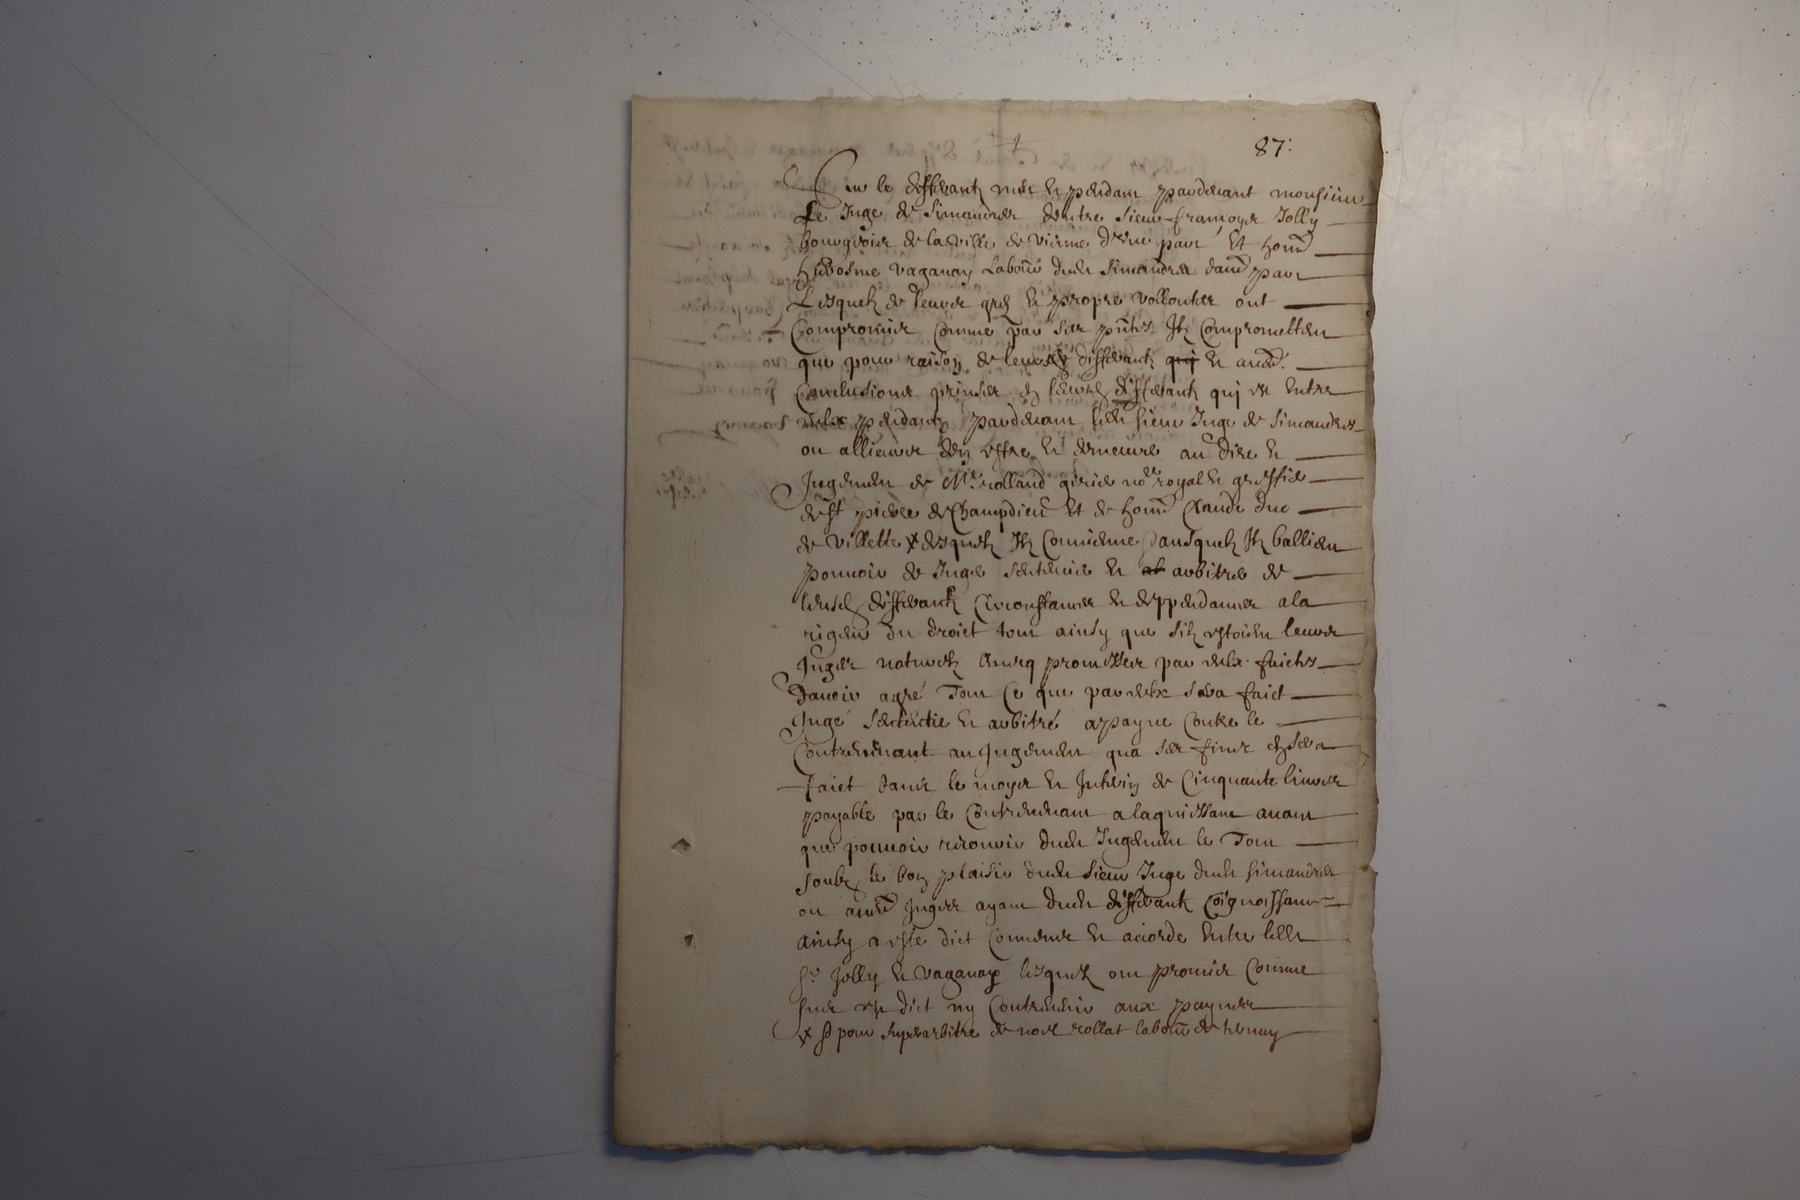 87:
Sur le differantz meu et pendam pardevant monsieur
Le Juge de Simandres dentre sieur francoys Jolly
bourgeois de la ville de vienne d'une part Et honn
hierosme vaganay Labour dudt Simandres daud part
Lesquelz de leurs gre et propre vollonter ont
Compromis comme par ses pntes Ilz Compromettent
que pour raison de leursdz differantz quj et aud
Conclusions prinses et differantz quj est entre
eulx pendantz pardevant ledt sieur Juge de Simandres
ou allieurs den estre et demeure au dire et
Jugement de Me rolland no.re royal et greffier
de St pierre de Champdieu Et de honn Claude duc
de villette x desquelz Ilz Conviene dausquelz Ilz ballient
pouvoir de Juger sentencie et ab arbitres de
leursdz differantz Circonstances et deppendances a la
rigeur du droict tout ainsy que silz estoient leurs
Juges naturelz Avecq promesses par eulx faictes
Davoir agre Tout Ce que par eulx sera faict
Juge sentencie et arbitré a payne Contre le
Contrevenant au Jugement qua ses fins sera
faict dans le moys et de Cinquante livres
payable par le Contrevenant a laquiessant avant
que pouvoir recouvrir dudt Jugement le Tout
soubz le bon plaisir dudt sieur Juge dudt simandres
ou aud Juges ayant dudt differantz Coignoissance
ainsy a este dict Convenu et accorde Entre ledt
Sr Jolly et vaganay lesquelz ont promis Comme
sus est dict ny Contrevenir aux paynes
x & pour superarbitre de noel rollat labour de